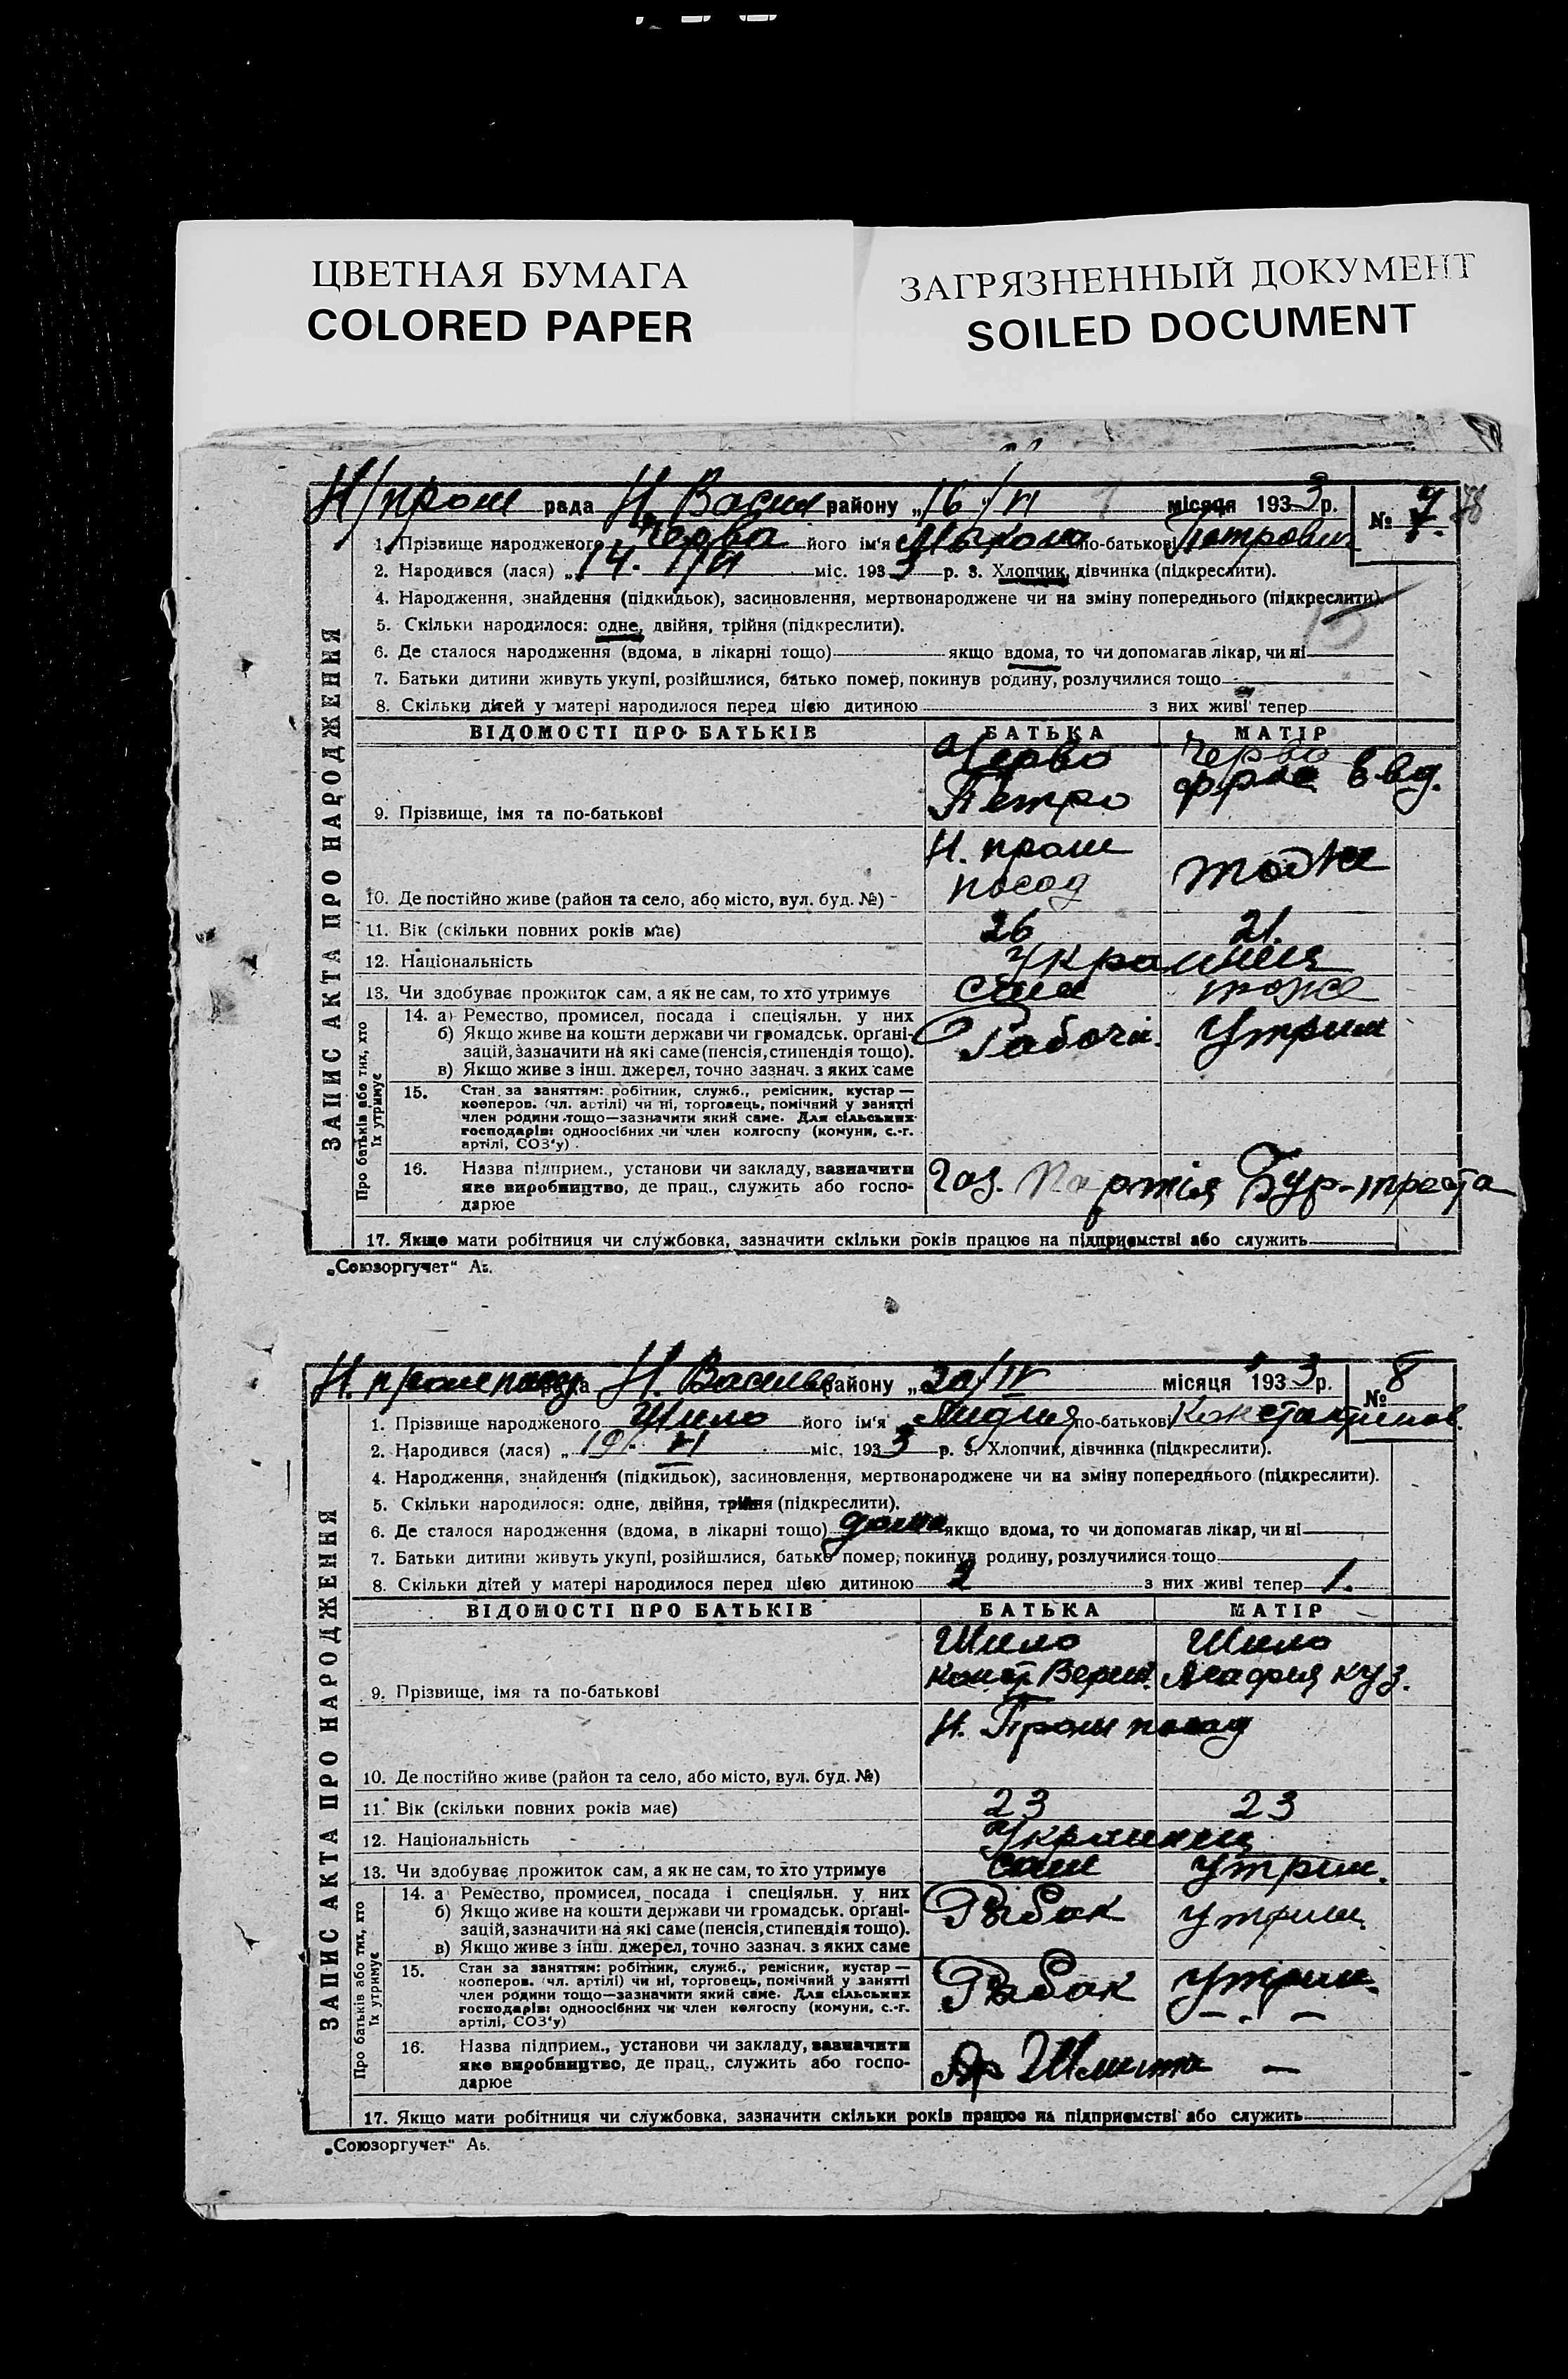 ЦВЕТНАЯ БУМАГА
COLORED PAPER
ЗАГРЯЗНЕННЫЙ ДОКУМЕНТ
SOILED DOCUMENT
Н/пром рада Н. Васил району „16/VI місяця 1933 р. № 7
1. Прізвище народженого Черва його ім'я Мыкола по-батькові Петрович
2. Народився (лася) „14. VI міс. 1933 р. 3. Хлопчик, дівчинка (підкреслити).
4. Народження, знайдення (підкидьок), засиновлення, мертвонароджене чи на зміну попереднього (підкреслити).
5. Скільки народилося: одне, двійня, трійня (підкреслити).
6. Де сталося народження (вдома, в лікарні тощо) якщо вдома, то чи допомагав лікар, чи ні
7. Батьки дитини живуть укупі, розійшлися, батько помер, покинув родину, розлучилися тощо
8. Скільки дітей у матері народилося перед цією дитиною з них живі тепер
ЗАПИС АКТА ПРО НАРОДЖЕННЯ
ВІДОМОСТІ ПРО БАТЬКІВ БАТЬКА МАТІР
Черво Черво
9. Прізвище, імя та по-батькові Петро
Н. пром
10. Де постійно живе (район та село, або місто, вул. буд. №) посад тоже
11. Вік (скільки повних років має) 26 21.
12. Національність
13. Чи здобуває прожиток сам, а як не сам, то хто утримує сам тоже
Про батьків або тих, хто їх утримує
14. а) Ремество, промисел, посада і спеціяльн. у них
б) Якщо живе на кошти держави чи громадськ. органі-
зацій, зазначити на які саме (пенсія, стипендія тощо). Рабочи. Утрим
в) Якщо живе з інш. джерел, точно зазнач. з яких саме
15. Стан за заняттям: робітник, служб., ремісник, кустар —
кооперов. (чл. артілі) чи ні, торговець, помічний у занятті
член родини тощо—зазначити який саме. Для сільських
господарів: одноосібних чи член колгоспу (комуни, с.-г.
артілі, СОЗ'у)
16. Назва підприєм., установи чи закладу, зазначити
яке виробництво, де прац., служить або госпо-
дарює Газ. Партія Бур-треста
17. Якщо мати робітниця чи службовка, зазначити скільки років працює на підприємстві або служить
„Союзоргучет" Аъ.
Н. пром посад рада Н. Василь району „20/IV місяця 1933 р. № 8
1. Прізвище народженого Шило його ім'я Лидия по-батькові Константинов.
2. Народився (лася) „19. VI міс. 1933 р. 3. Хлопчик, дівчинка (підкреслити).
4. Народження, знайдення (підкидьок), засиновлення, мертвонароджене чи на зміну попереднього (підкреслити).
5. Скільки народилося: одне, двійня, трійня (підкреслити).
6. Де сталося народження (вдома, в лікарні тощо) дома якщо вдома, то чи допомагав лікар, чи ні
7. Батьки дитини живуть укупі, розійшлися, батько помер, покинув родину, розлучилися тощо
8. Скільки дітей у матері народилося перед цією дитиною 2 з них живі тепер 1.
ЗАПИС АКТА ПРО НАРОДЖЕННЯ
ВІДОМОСТІ ПРО БАТЬКІВ БАТЬКА МАТІР
Шило Шило
9. Прізвище, імя та по-батькові Агафия куз.
Н. Пром посад
10. Де постійно живе (район та село, або місто, вул. буд. №)
11. Вік (скільки повних років має) 23 23
12. Національність Украинец
13. Чи здобуває прожиток сам, а як не сам, то хто утримує сам утрим.
Про батьків або тих, хто їх утримує
14. а Ремество, промисел, посада і спеціяльн. у них
б) Якщо живе на кошти держави чи громадськ. органі- Рыбак утрим.
зацій, зазначити на які саме (пенсія, стипендія тощо).
в) Якщо живе з інш. джерел, точно зазнач. з яких саме
15. Стан за заняттям: робітник, служб., ремісник, кустар —
кооперов. (чл. артілі) чи ні, торговець, помічний у занятті
член родини тощо—зазначити який саме. Для сільських Рыбак утрим.
господарів: одноосібних чи член колгоспу (комуни, с.-г.
артілі, СОЗ'у)
16. Назва підприєм., установи чи закладу, зазначити
яке виробництво, де прац., служить або госпо- Ар Шмита —
дарює
17. Якщо мати робітниця чи службовка, зазначити скільки років працює на підприємстві або служить
„Союзоргучет" Аъ.